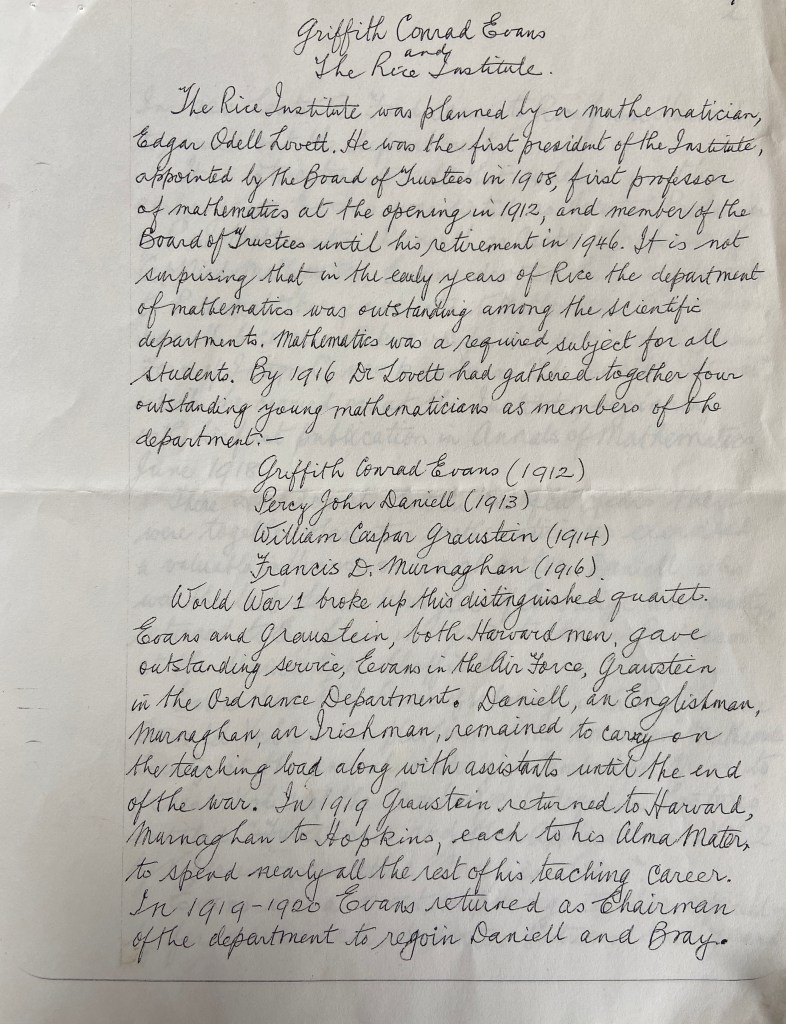 Griffith Conrad Evans
and
The Rice Institute.
The Rice Institute was planned by a mathematician,
Edgar Odell Lovett. He was the first president of the Institute,
appointed by the Board of Trustees in 1908, first professor
of mathematics at the opening in 1912, and member of the
Board of Trustees until his retirement in 1946. It is not
surprising that in the early years of Rice the department
of mathematics was outstanding among the scientific
departments. Mathematics was a required subject for all
students. By 1916 Dr Lovett had gathered together four
outstanding young mathematicians as members of the
department:—
Griffith Conrad Evans (1912)
Percy John Daniell (1913)
William Caspar Graustein (1914)
Francis D. Murnaghan (1916).
World War 1 broke up this distinguished quartet.
Evans and Graustein, both Harvard men, gave
outstanding service, Evans in the Air Force, Graustein
in the Ordnance Department. Daniell, an Englishman,
Murnaghan, an Irishman, remained to carry on
the teaching load along with assistants until the end
of the war. In 1919 Graustein returned to Harvard,
Murnaghan to Hopkins, each to his Alma Mater,
to spend nearly all the rest of his teaching career.
In 1919-1920 Evans returned as Chairman
of the department to rejoin Daniell and Bray.